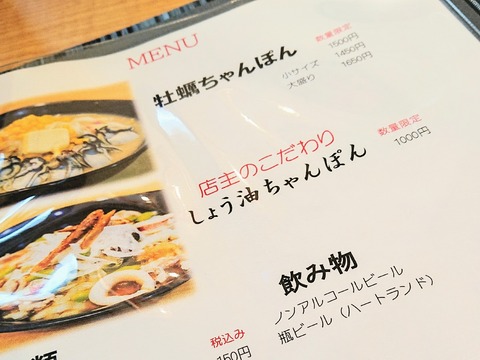 MENU
牡蠣ちゃんぽん
数量限定
1500円
小サイズ 1450円
大盛り 1650円
店主のこだわり
しょう油ちゃんぽん
数量限定
1000円
飲み物
ノンアルコールビール
瓶ビール（ハートランド）
税込み
150円